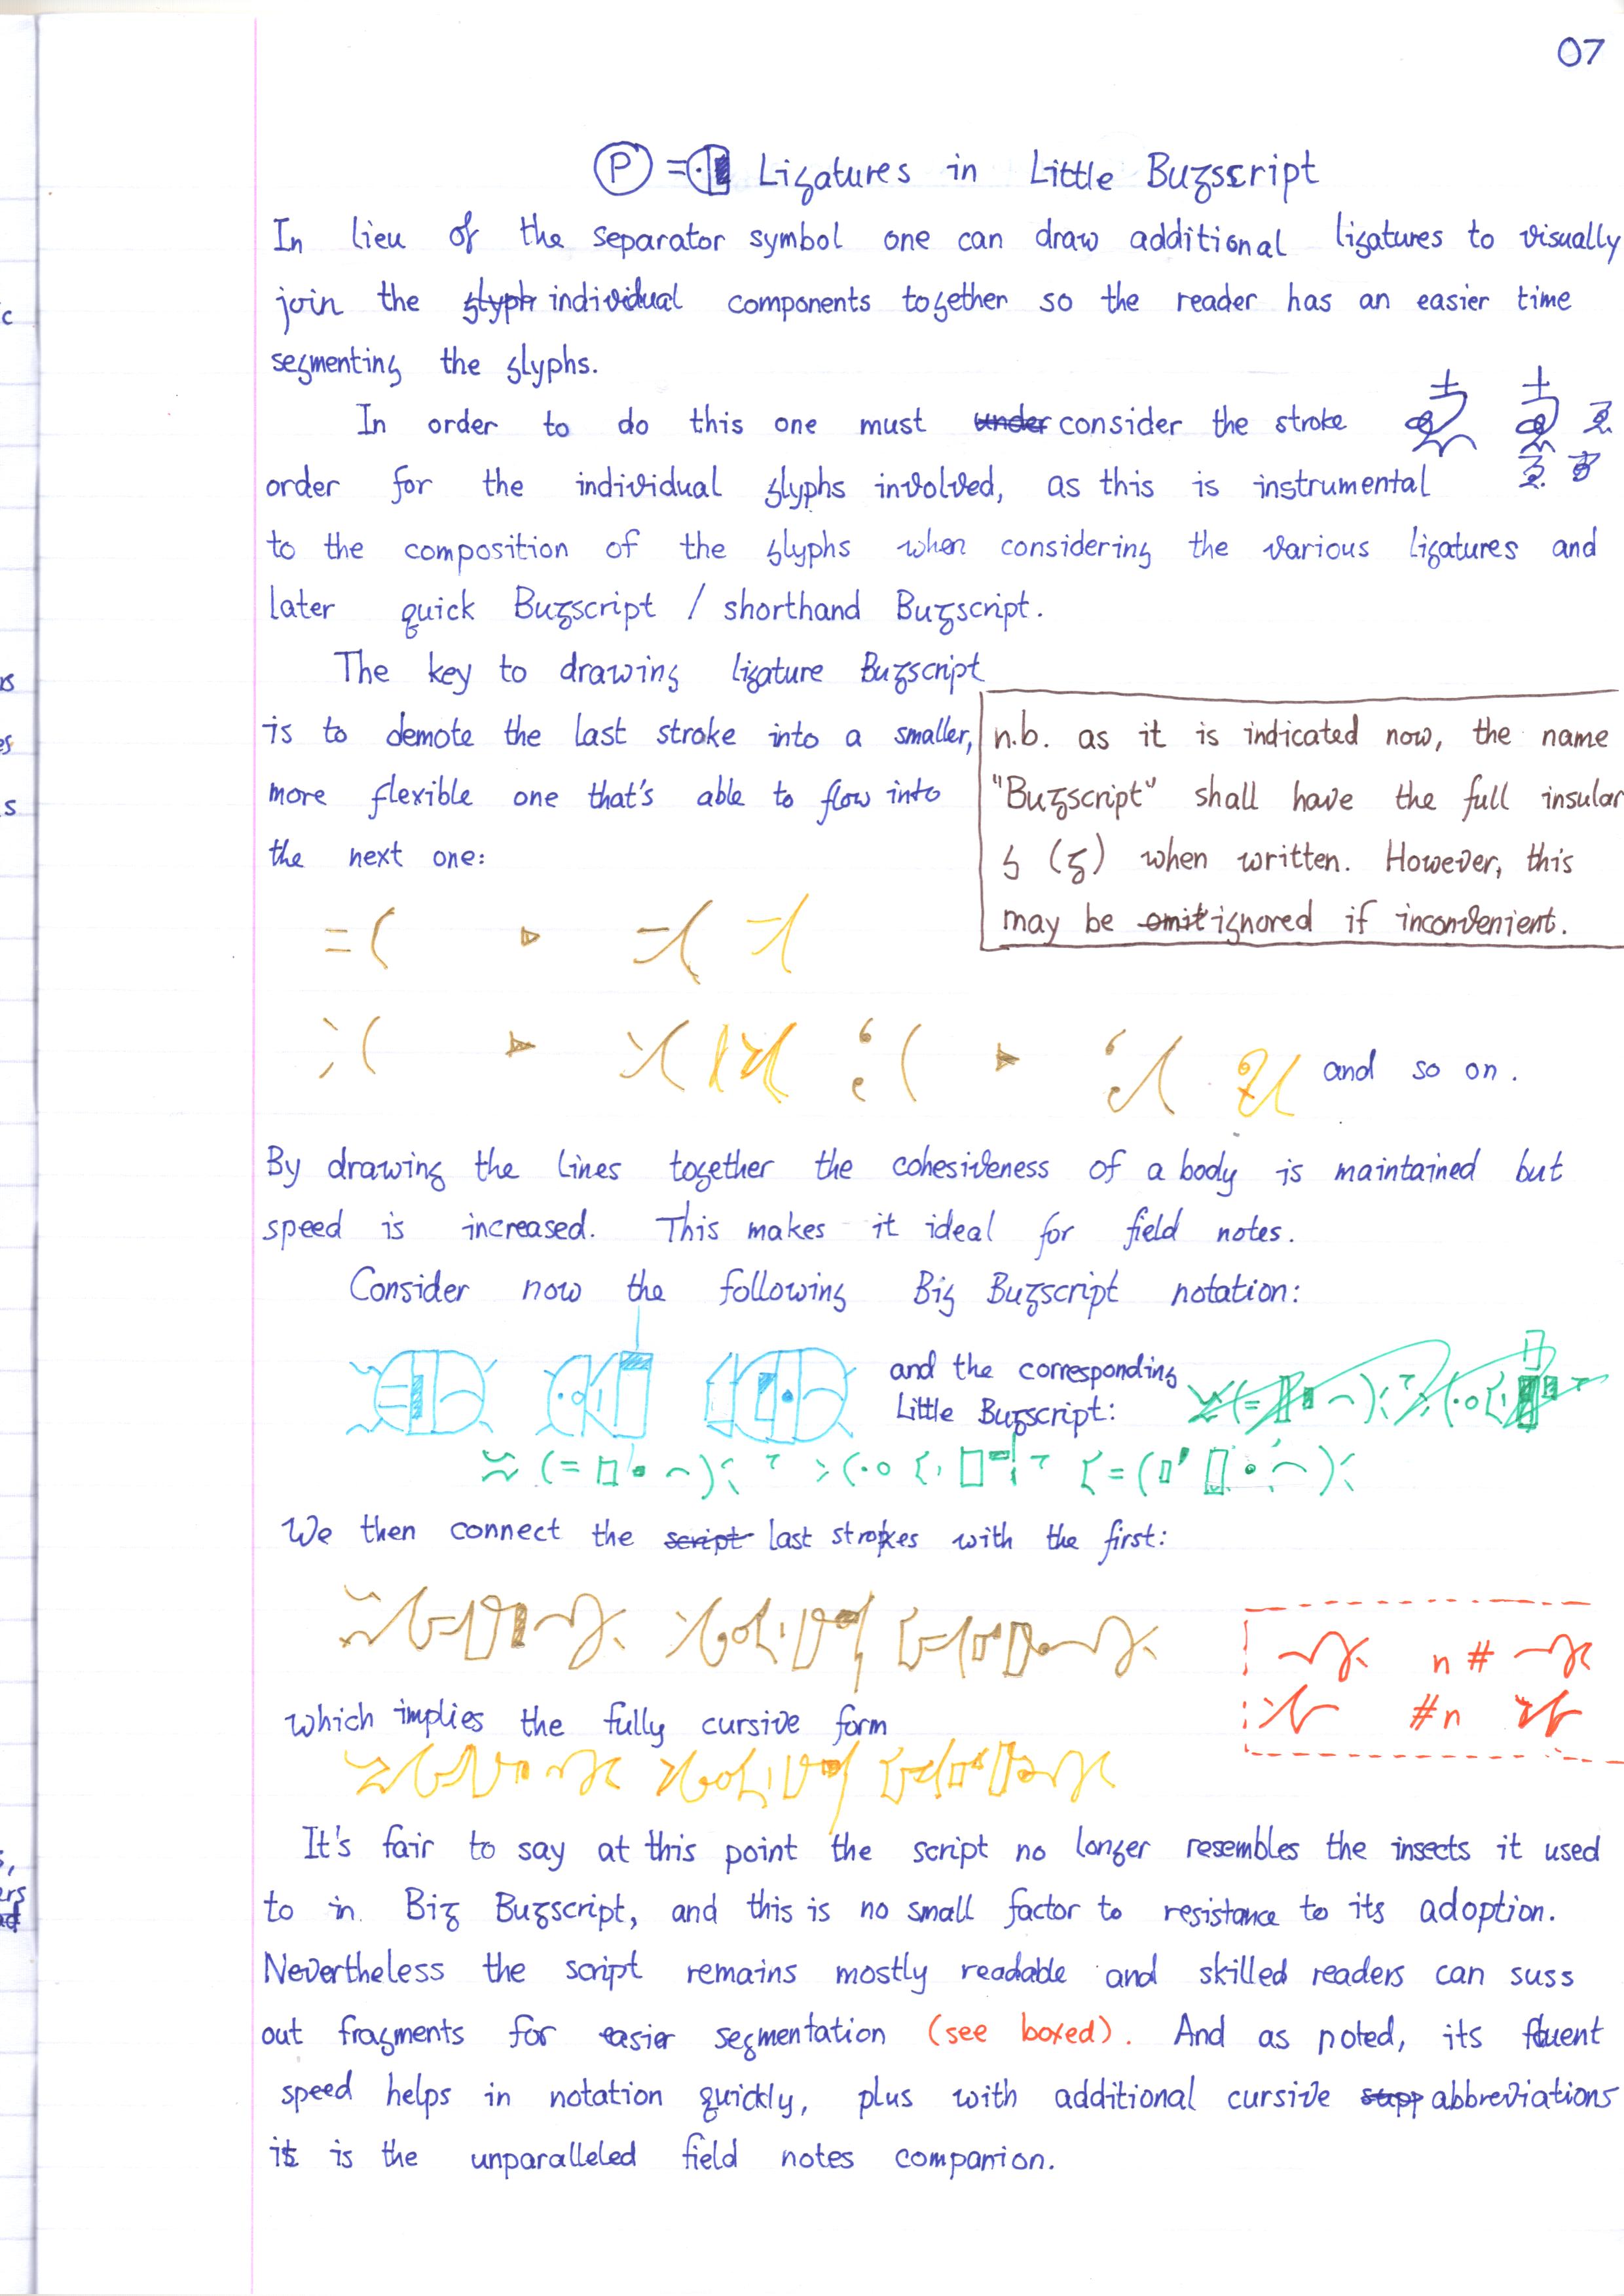 07
Ⓟ Ligatures in Little Bugscript
In lieu of the separator symbol one can draw additional ligatures to visually
join the glyph individual components together so the reader has an easier time
segmenting the glyphs.
In order to do this one must under consider the stroke
order for the individual glyphs involved, as this is instrumental
to the composition of the glyphs when considering the various ligatures and
later quick Bugscript / shorthand Bugscript.
The key to drawing ligature Bugscript
is to demote the last stroke into a smaller,
more flexible one that's able to flow into
the next one:
n.b. as it is indicated now, the name
"Bugscript" shall have the full insular
ᵹ (ᵹ) when written. However, this
may be omit ignored if inconvenient.
and so on.
By drawing the lines together the cohesiveness of a body is maintained but
speed is increased. This makes it ideal for field notes.
Consider now the following Big Bugscript notation:
and the corresponding
Little Bugscript:
We then connect the script last strokes with the first:
n #
#n
which implies the fully cursive form
It's fair to say at this point the script no longer resembles the insects it used
to in Big Bugscript, and this is no small factor to resistance to its adoption.
Nevertheless the script remains mostly readable and skilled readers can suss
out fragments for easier segmentation (see boxed). And as noted, its fluent
speed helps in notation quickly, plus with additional cursive supp abbreviations
it is the unparalleled field notes companion.